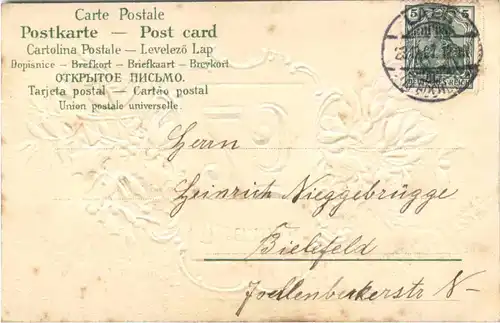 Carte Postale
Postkarte — Post card
Cartolina Postale — Levelező Lap
Dopisnice — Brefkort — Briefkaart — Brevkort
ОТКРЫТОЕ ПИСЬМО.
Tarjeta postal — Cartão postal
Union postale universelle.
5 5
REICH
Herrn
Heinrich Nieggebrügge
Bielefeld
Joellenbeckerstr N-